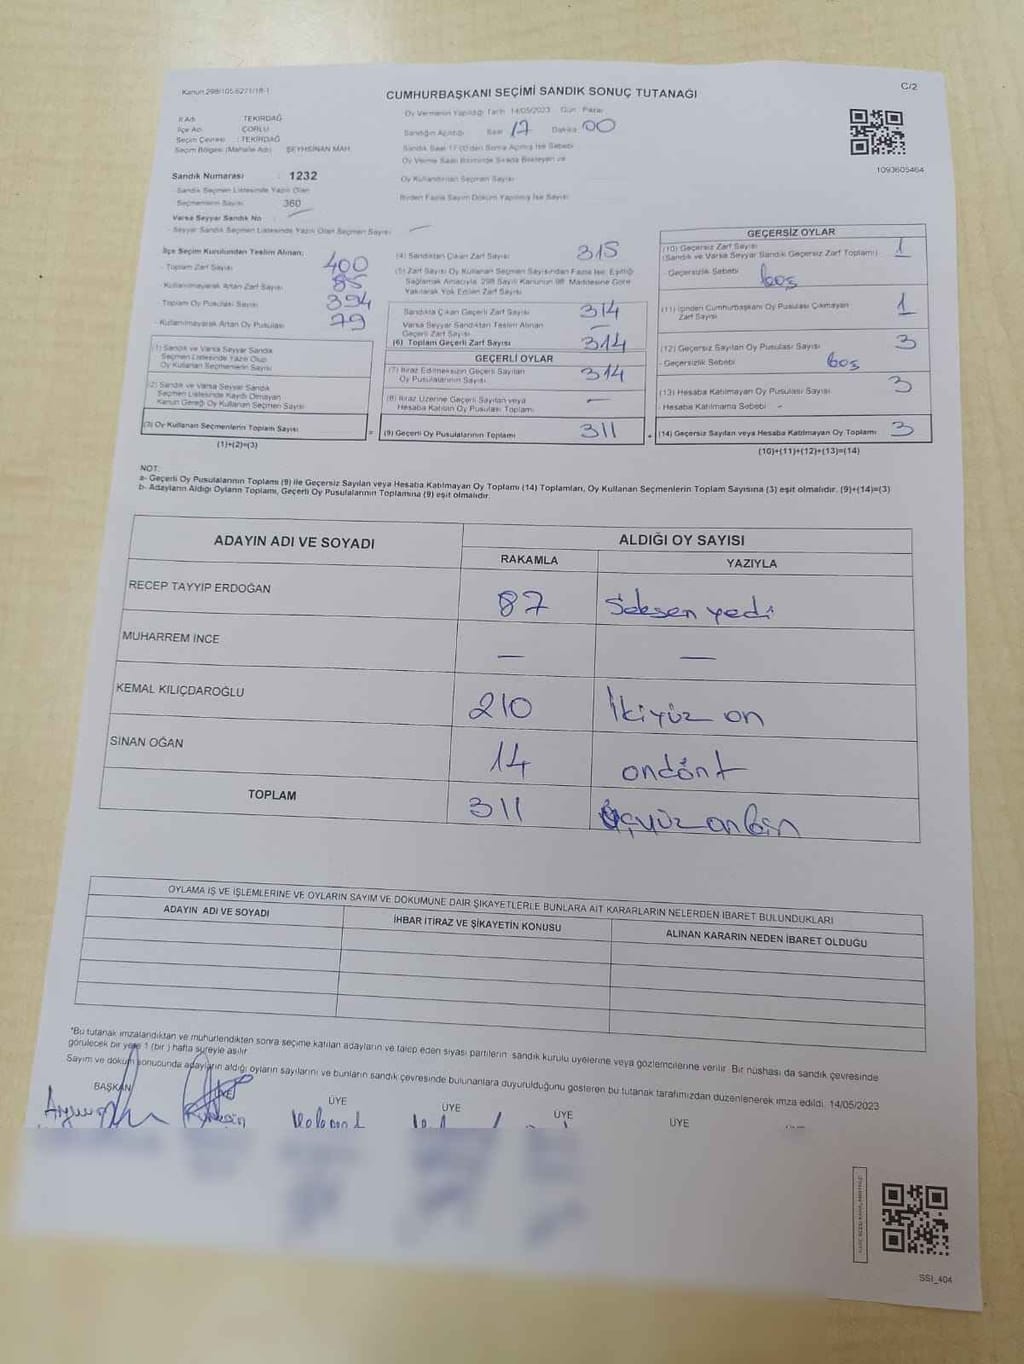 Kanun 298/105-6271/18-1
CUMHURBAŞKANI SEÇİMİ SANDIK SONUÇ TUTANAĞI
C/2
İl Adı : TEKİRDAĞ
İlçe Adı : ÇORLU
Seçim Çevresi : TEKİRDAĞ
Seçim Bölgesi (Mahalle Adı) : ŞEYHSİNAN MAH.
Oy Vermenin Yapıldığı Tarih 14/05/2023 Gün Pazar
Sandığın Açıldığı Saat 17 Dakika 00
Sandık Saat 17:00'den Sonra Açılmış İse Sebebi
Oy Verme Saati Bitiminde Sırada Bekleyen ve
Oy Kullandırılan Seçmen Sayısı
Birden Fazla Sayım Döküm Yapılmış İse Sayısı
1093605464
Sandık Numarası : 1232
Sandık Seçmen Listesinde Yazılı Olan
Seçmenlerin Sayısı : 360
Varsa Seyyar Sandık No :
- Seyyar Sandık Seçmen Listesinde Yazılı Olan Seçmen Sayısı : —
İlçe Seçim Kurulundan Teslim Alınan;
- Toplam Zarf Sayısı 400
- Kullanılmayarak Artan Zarf Sayısı 85
- Toplam Oy Pusulası Sayısı 394
- Kullanılmayarak Artan Oy Pusulası 79
(1) Sandık ve Varsa Seyyar Sandık
Seçmen Listesinde Yazılı Olup
Oy Kullanan Seçmen Sayısı
(2) Sandık ve Varsa Seyyar Sandık
Seçmen Listesinde Kaydı Olmayan
Kanun Gereği Oy Kullanan Seçmen Sayısı
(3) Oy Kullanan Seçmenlerin Toplam Sayısı
(1)+(2)=(3)
(4) Sandıktan Çıkan Zarf Sayısı 315
(5) Zarf Sayısı Oy Kullanan Seçmen Sayısından Fazla İse, Eşitliği
Sağlamak Amacıyla, 298 Sayılı Kanunun 98. Maddesine Göre
Yakılarak Yok Edilen Zarf Sayısı
Sandıkta Çıkan Geçerli Zarf Sayısı 314
Varsa Seyyar Sandıktan Teslim Alınan
Geçerli Zarf Sayısı —
(6) Toplam Geçerli Zarf Sayısı 314
GEÇERLİ OYLAR
(7) İtiraz Edilmeksizin Geçerli Sayılan
Oy Pusulalarının Sayısı 314
(8) İtiraz Üzerine Geçerli Sayılan veya
Hesaba Katılan Oy Pusulası Toplamı —
= (9) Geçerli Oy Pusulalarının Toplamı 311
GEÇERSİZ OYLAR
(10) Geçersiz Zarf Sayısı
(Sandık ve Varsa Seyyar Sandık Geçersiz Zarf Toplamı) 1
- Geçersizlik Sebebi boş
(11) İçinden Cumhurbaşkanı Oy Pusulası Çıkmayan
Zarf Sayısı 1
(12) Geçersiz Sayılan Oy Pusulası Sayısı 3
- Geçersizlik Sebebi boş
(13) Hesaba Katılmayan Oy Pusulası Sayısı 3
- Hesaba Katılmama Sebebi -
+ (14) Geçersiz Sayılan veya Hesaba Katılmayan Oy Toplamı 3
(10)+(11)+(12)+(13)=(14)
NOT:
a- Geçerli Oy Pusulalarının Toplamı (9) ile Geçersiz Sayılan veya Hesaba Katılmayan Oy Toplamı (14) Toplamları, Oy Kullanan Seçmenlerin Toplam Sayısına (3) eşit olmalıdır. (9)+(14)=(3)
b- Adayların Aldığı Oyların Toplamı, Geçerli Oy Pusulalarının Toplamına (9) eşit olmalıdır.
ADAYIN ADI VE SOYADI
ALDIĞI OY SAYISI
RAKAMLA YAZIYLA
RECEP TAYYİP ERDOĞAN 87 Seksen yedi
MUHARREM İNCE — —
KEMAL KILIÇDAROĞLU 210 İkiyüz on
SİNAN OĞAN 14 ondört
TOPLAM 311 Üçyüz onbin
OYLAMA İŞ VE İŞLEMLERİNE VE OYLARIN SAYIM VE DÖKÜMÜNE DAİR ŞİKAYETLERLE BUNLARA AİT KARARLARIN NELERDEN İBARET BULUNDUKLARI
ADAYIN ADI VE SOYADI İHBAR İTİRAZ VE ŞİKAYETİN KONUSU ALINAN KARARIN NEDEN İBARET OLDUĞU
*Bu tutanak imzalandıktan ve mühürlendikten sonra seçime katılan adayların ve talep eden siyasi partilerin sandık kurulu üyelerine veya gözlemcilerine verilir. Bir nüshası da sandık çevresinde
görülecek bir yere 1 (bir) hafta süreyle asılır.
Sayım ve döküm sonucunda adayların aldığı oyların sayılarını ve bunların sandık çevresinde bulunanlara duyurulduğunu gösteren bu tutanak tarafımızdan düzenlenerek imza edildi. 14/05/2023
BAŞKAN ÜYE ÜYE ÜYE ÜYE
SSI_404